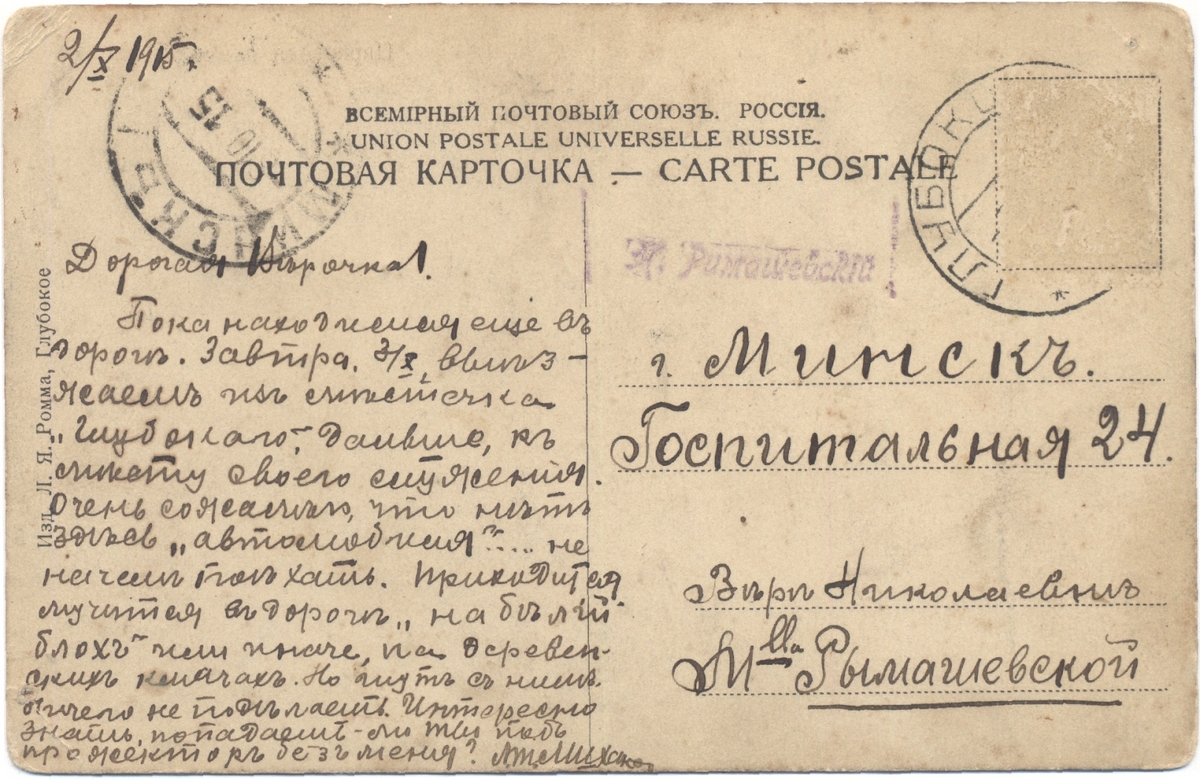 2/X 1915.
ВСЕМІРНЫЙ ПОЧТОВЫЙ СОЮЗЪ. РОССІЯ.
UNION POSTALE UNIVERSELLE RUSSIE.
ПОЧТОВАЯ КАРТОЧКА — CARTE POSTALE
МИНСКЪ
10 15
ГЛУБОК
Н. Римашевскій
Изд. Л. Я. Ромма, Глубокое
Дорогая Вѣрочка!
Пока находимся еще въ
дорогѣ. Завтра, 3/X, выѣз-
жаемъ изъ мѣстечка
„Глубокаго", дальше, къ
мѣсту своего служения.
Очень сожалѣю, что нѣтъ
здѣсь „автомобиля"..... не
на чемъ поѣхать. Приходится
мучится въ дорогѣ „на бѣлый
блохъ" или иначе, на деревен-
скихъ клячахъ. Но съ ними
ничего не подѣлаешь. Интересно
знать, попадаешь-ли ты подъ
прожекторъ безъ меня?
г. Минскъ.
Госпитальная 24.
Вѣрѣ Николаевнѣ
Mlle Рымашевской